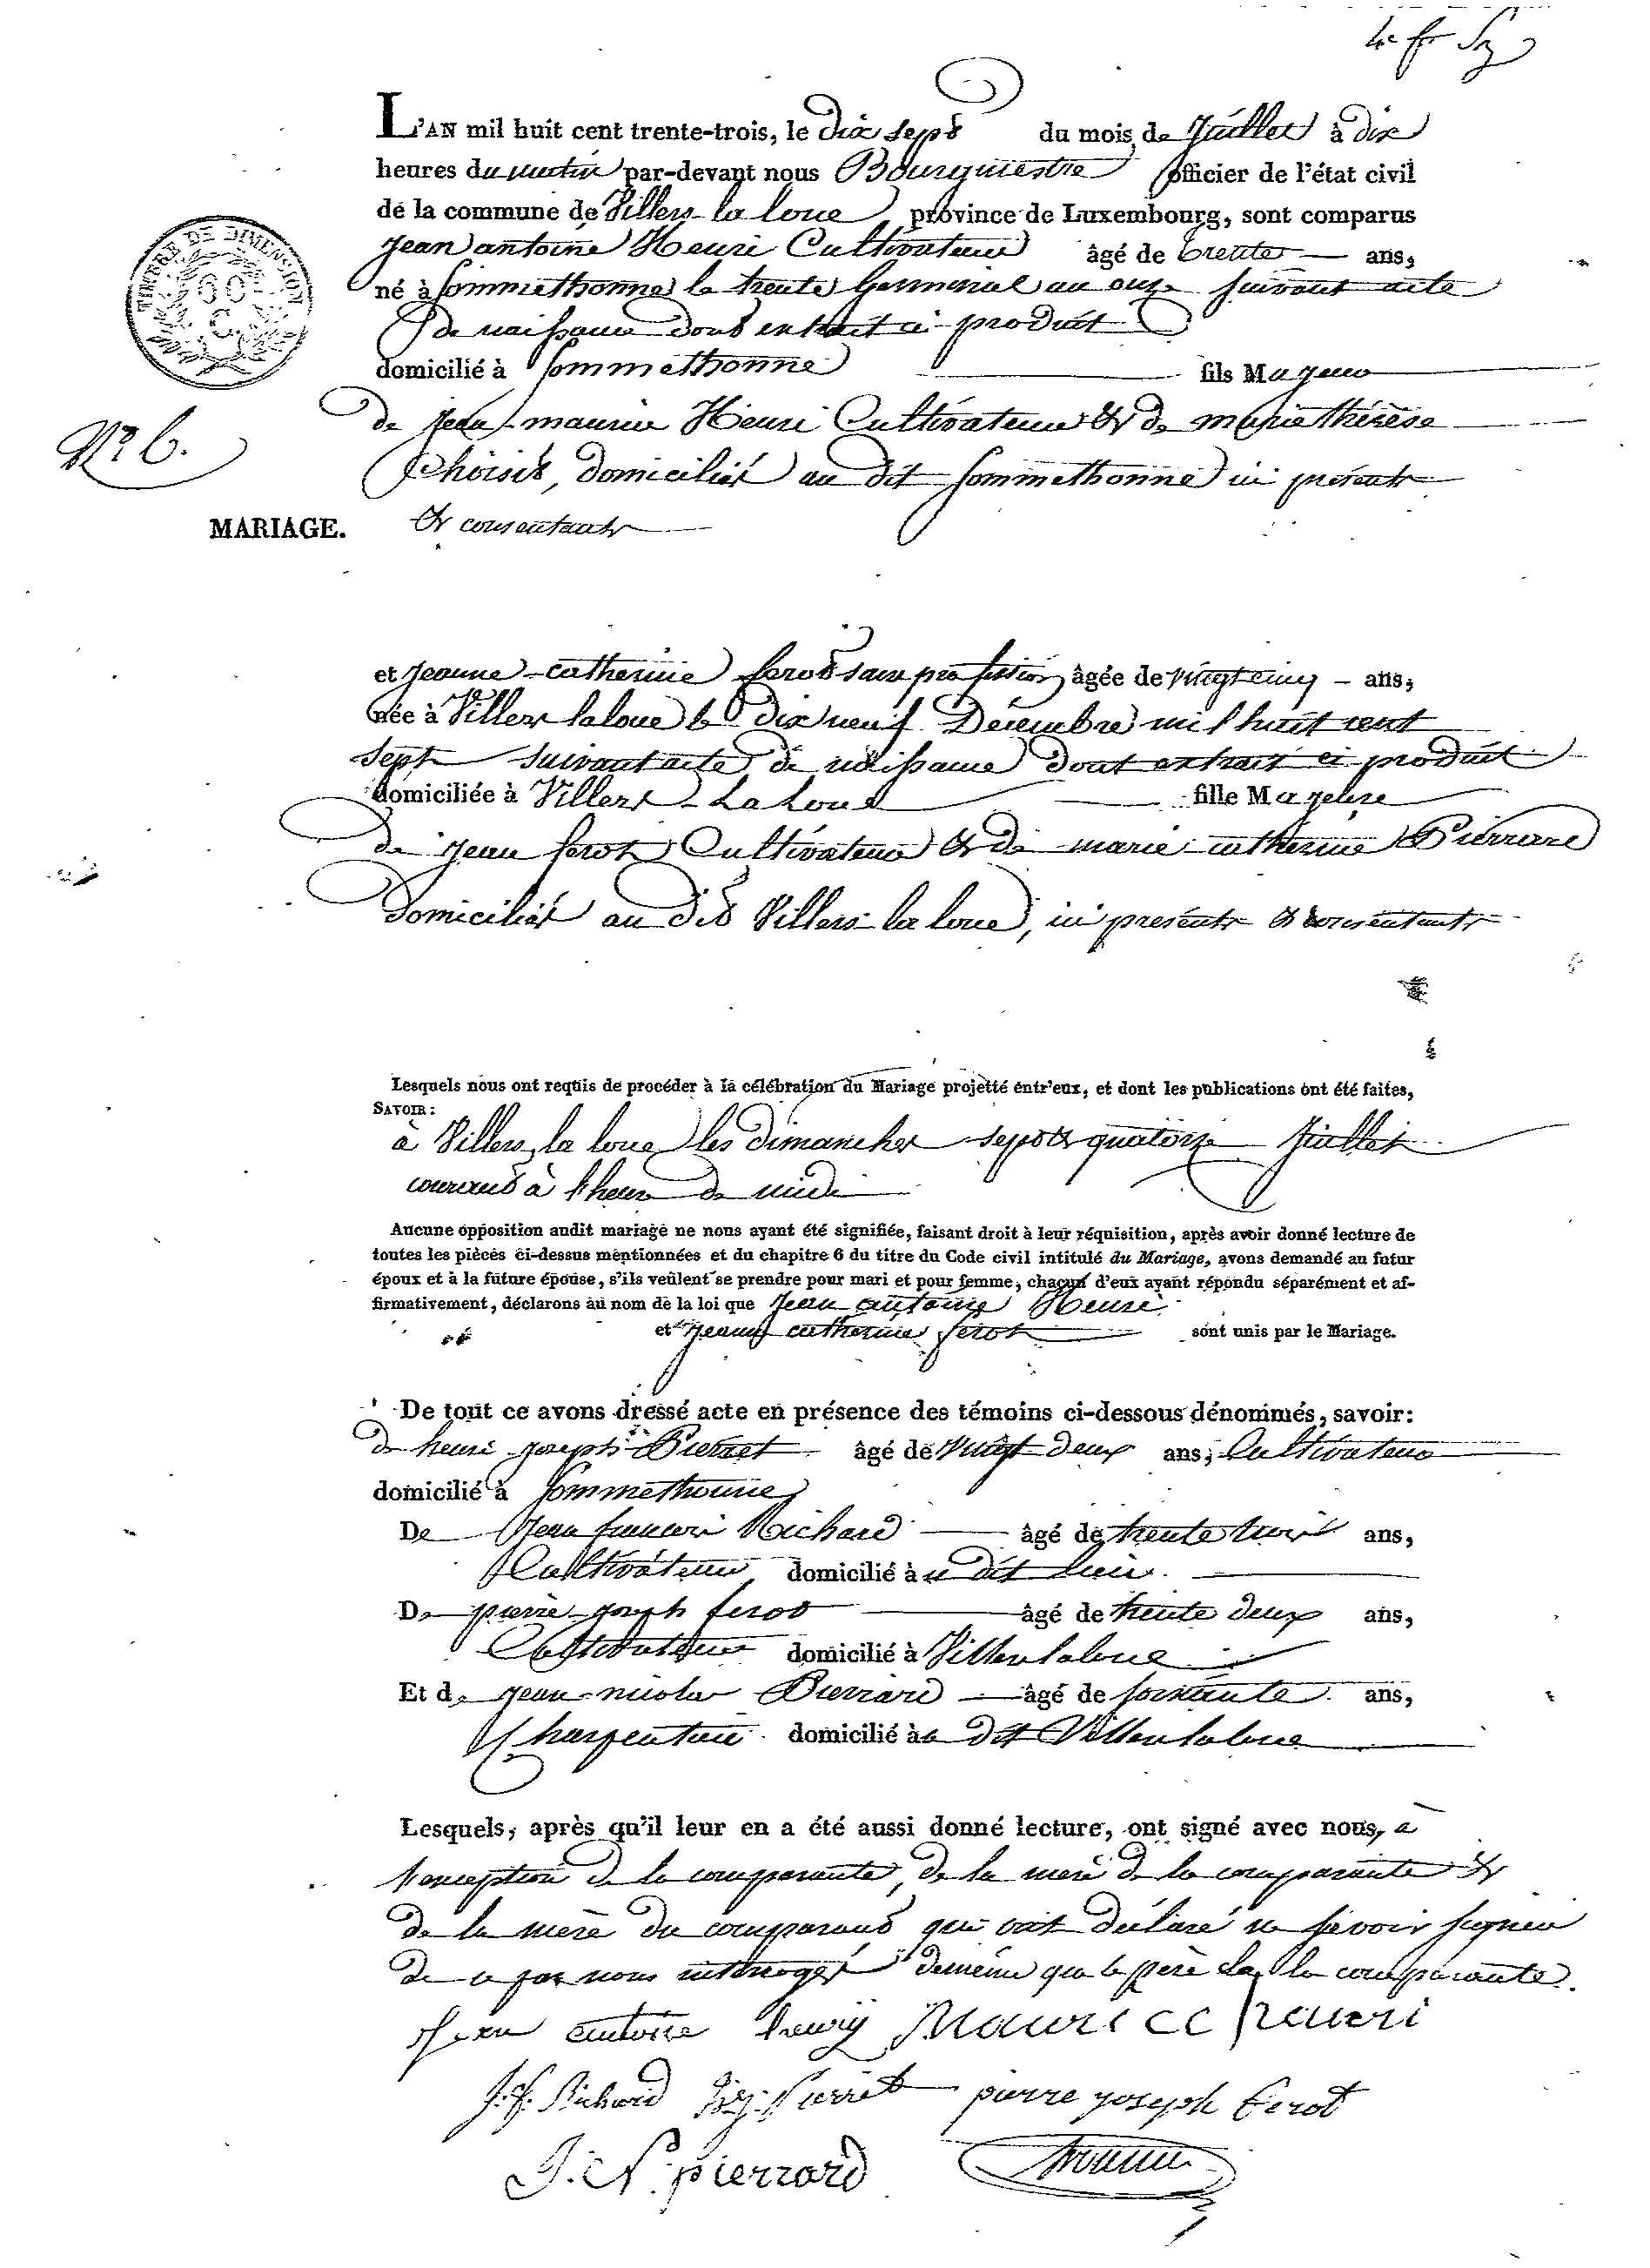 L'AN mil huit cent trente-trois, le dix sept du mois de Juillet à dix
heures du matin par-devant nous Bourgmestre officier de l'état civil
de la commune de Villers-la loue province de Luxembourg, sont comparus
TIMBRE DE DIMENSION
60
C.
Jean antoine Henri Cultivateur âgé de trente ans,
né à Sommethonne le trente Germinal an onze suivant acte
de naissance dont extrait ci-produit
domicilié à Sommethonne fils Majeur
de Jean-maurice Henri Cultivateur & de marie thérèse
Choisit, domiciliés au dit Sommethonne ici présents
N° 6.
MARIAGE.
& consentants
et Jeanne-catherine ferot sans profession âgée de vingt cinq ans,
née à Villers laloue le dix neuf Décembre mil huit cent
sept suivant acte de naissance dont extrait ci produit
domiciliée à Villers-La Loue fille Majeure
de Jean ferot Cultivateur & de marie catherine Pierrare
domiciliés au dit Villers-la loue, ici presents & consentants
Lesquels nous ont requis de procéder à la célébration du Mariage projetté entr'eux, et dont les publications ont été faites,
SAVOIR:
à Villers la loue les dimanches sept & quatorze Juillet
courant à l'heure de midi
Aucune opposition audit mariage ne nous ayant été signifiée, faisant droit à leur réquisition, après avoir donné lecture de
toutes les pièces ci-dessus mentionnées et du chapitre 6 du titre du Code civil intitulé du Mariage, avons demandé au futur
époux et à la future épouse, s'ils veulent se prendre pour mari et pour femme, chacun d'eux ayant répondu séparément et af-
firmativement, déclarons au nom de la loi que Jean antoine Henri
et Jeanne catherine ferot sont unis par le Mariage.
De tout ce avons dressé acte en présence des témoins ci-dessous dénommés, savoir:
de henri joseph Pierret âgé de vingt deux ans, Cultivateur
domicilié à Sommethonne
De Jean francois Richard âgé de trente trois ans,
Cultivateur domicilié au dit lieu.
De pierre-joseph ferot âgé de trente deux ans,
Cultivateur domicilié à Villers laloue
Et de Jean-nicolas Pierrard âgé de soixante ans,
Charpentier domicilié au dit Villers laloue
Lesquels, après qu'il leur en a été aussi donné lecture, ont signé avec nous, à
l'exception de la comparante, de la mere de la comparante &
de la mère du comparant qui ont déclaré ne savoir signer
de ce par nous interrogés demême que le père de la comparante.
Jean antoine henry Maurice henri
J. f. Richard h. j. Pierret pierre joseph ferot
J. N. pierrard